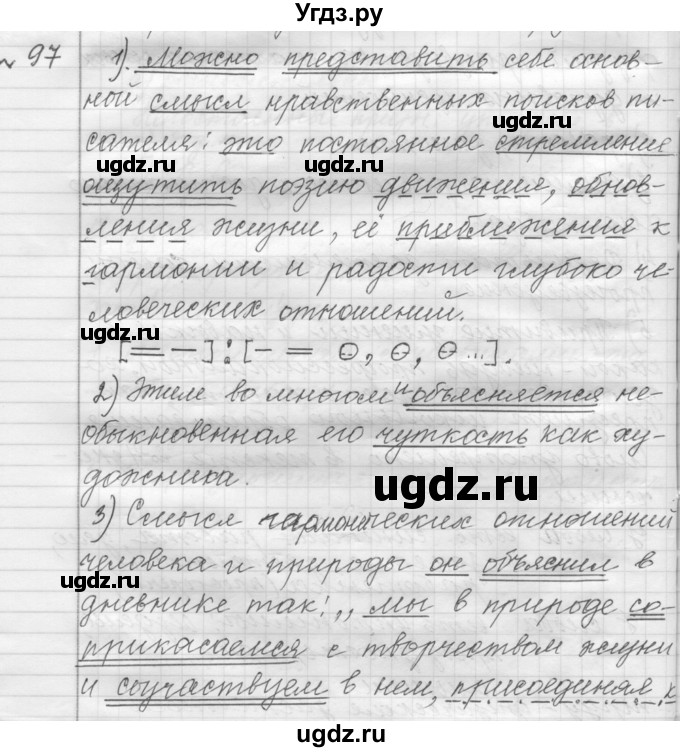 Угдз.ру
№ 97
1). Можно представить себе основ-
ной смысл нравственных поисков пи-
ugdz.ru
сателя: это постоянное стремление
ugdz.ru
ugdz.ru
ощутить поэзию движения, обнов-
ления жизни, её приближения к
гармонии и радости глубоко че-
ловеческих отношений.
ugdz.ru
[= -]:[- = О, О, О...].
2) Этим во многом и объясняется не-
обыкновенная его чуткость как ху-
дожника.
ugdz.ru
3) Смысл гармонических отношений
человека и природы он объяснил в
ugdz.ru
дневнике так: ,, мы в природе со-
ugdz.ru
прикасаемся с творчеством жизни
и соучаствуем в нем, присоединяя к
ugdz.ru